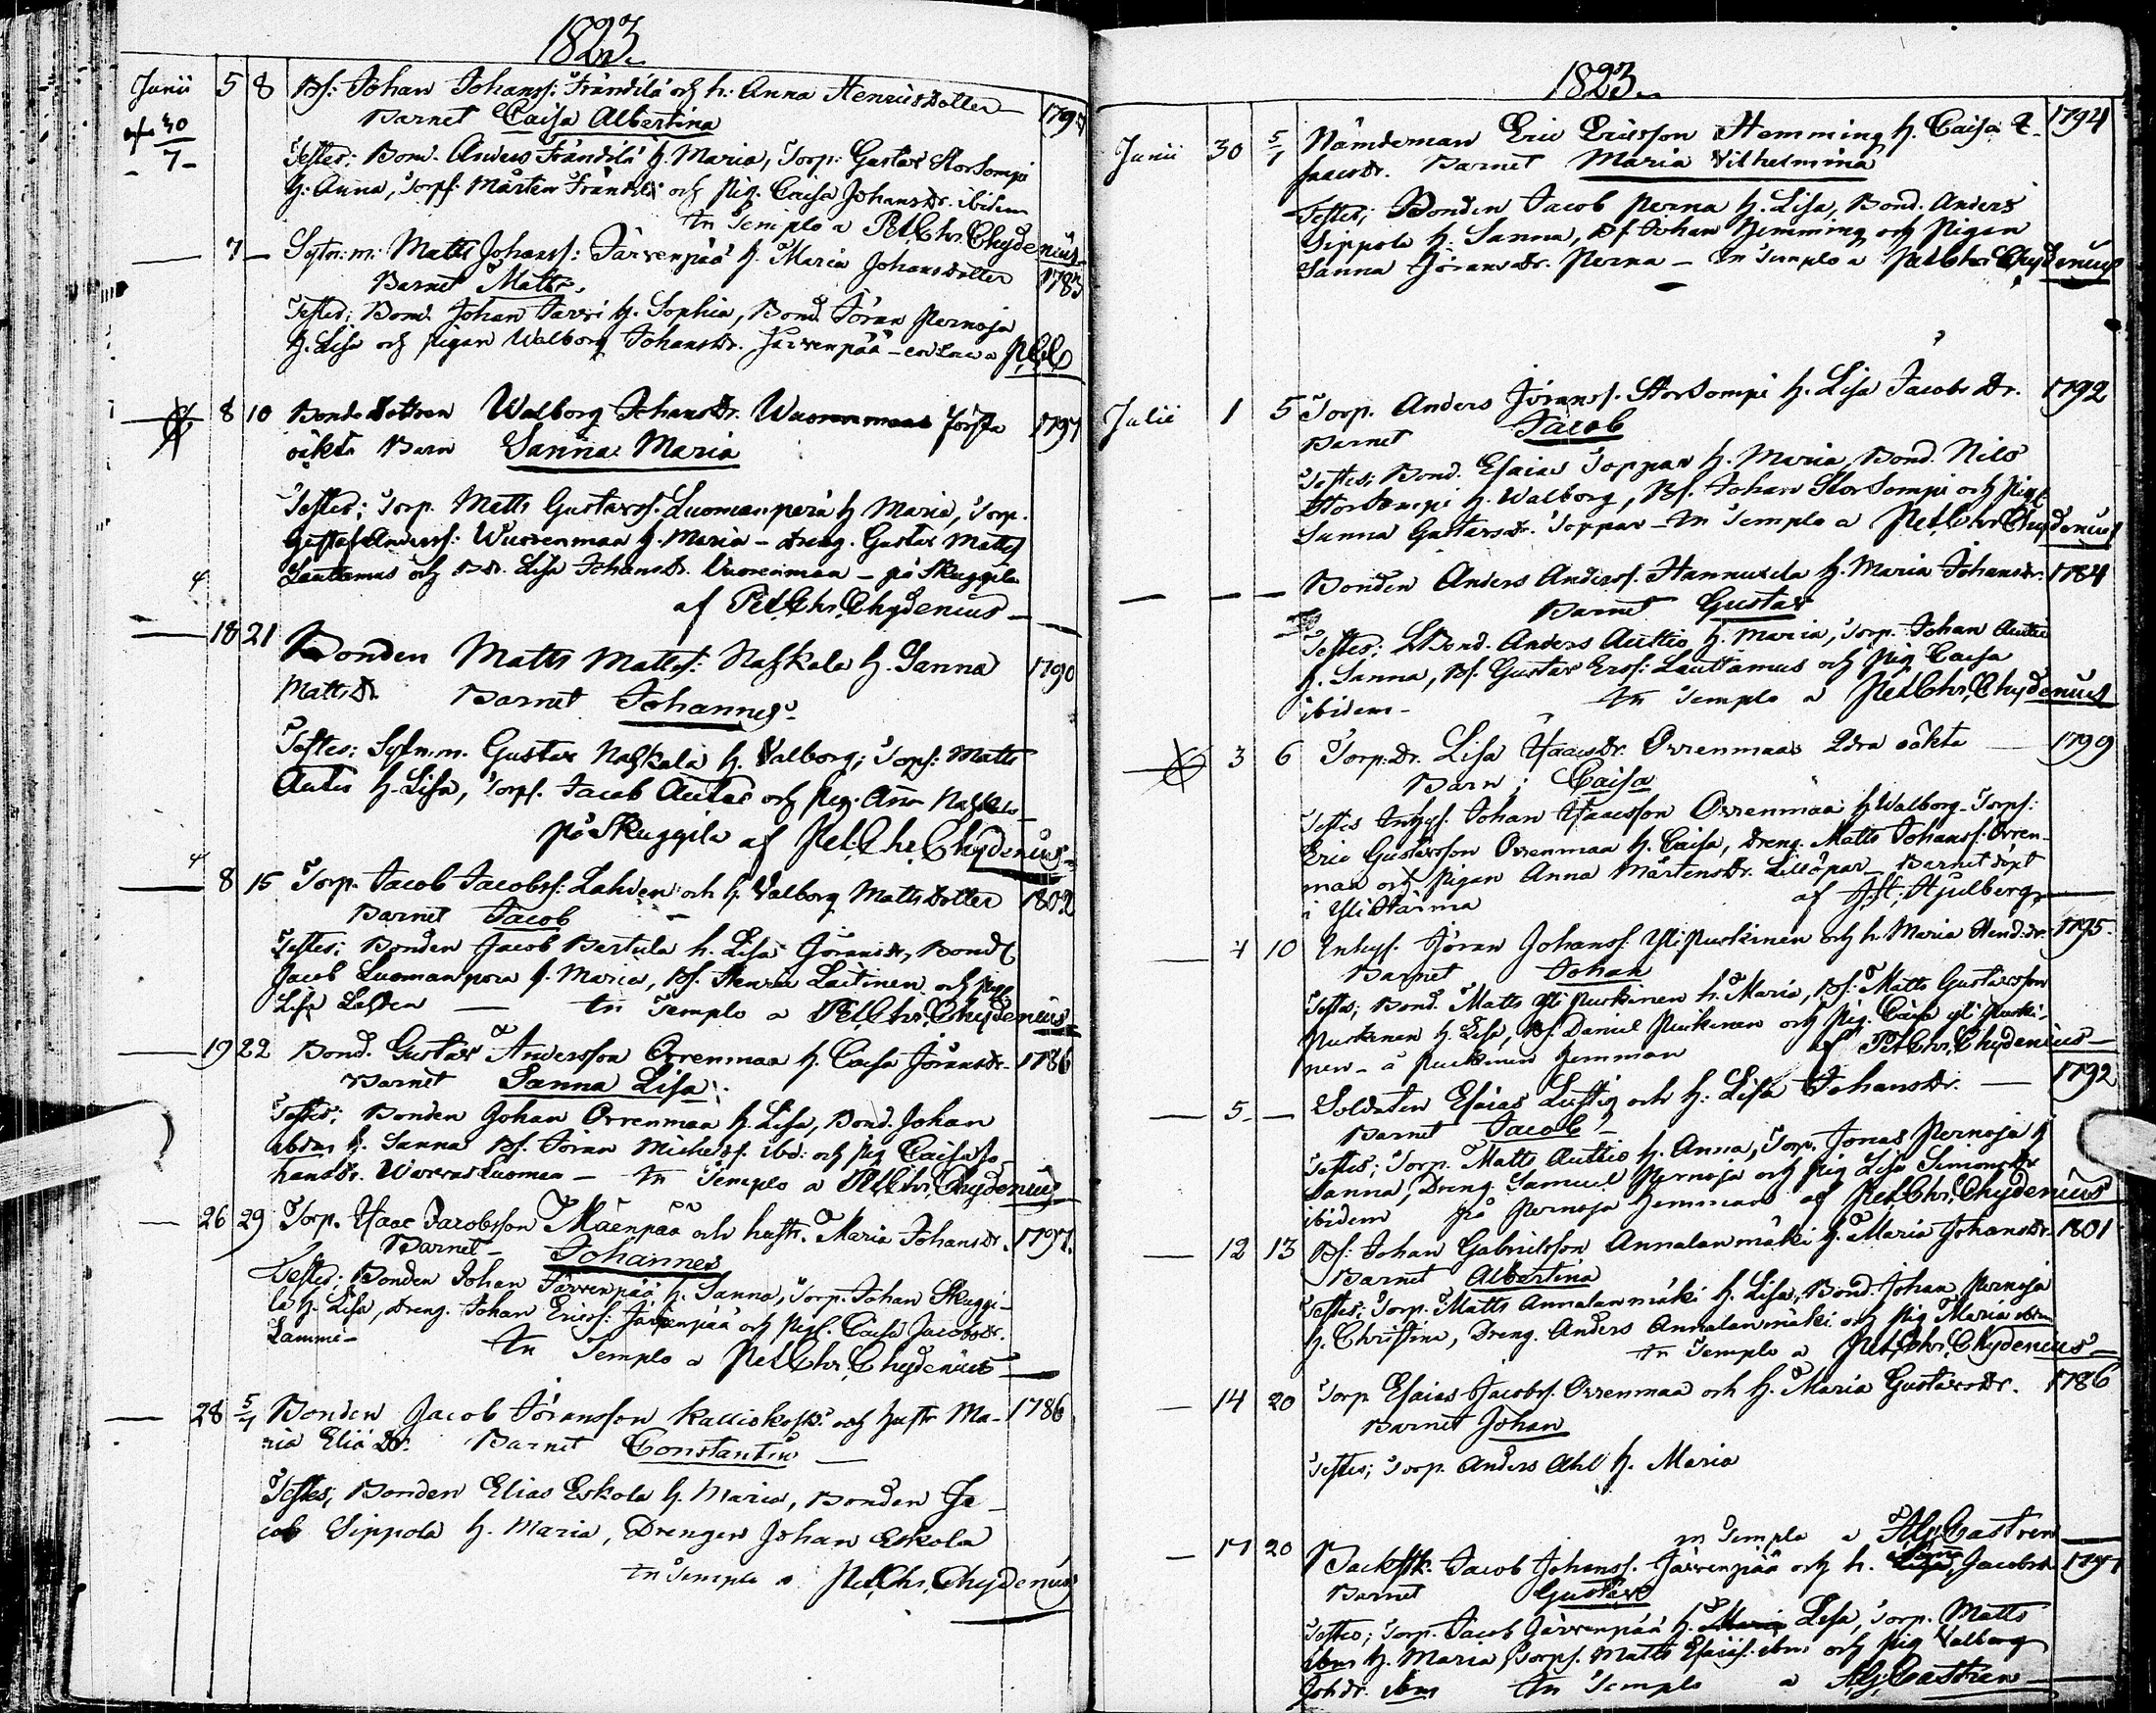 1823.
Junii 5 8 Bs: Johan Johanss: Frändilä och h. Anna Henricsdotter
Barnet Caisa Albertina
30
7
Testes: Bond. Anders Frändilä h. Maria, Torp: Gustav Storsompi
h. Anna, Torps: Mårten Frändilä och Pig. Caisa Johansdr. ibidem
In Templo a Pet. Chr. Chydenius
7 Sytn:m: Matts Johanss: Järvenpää h. Maria Johansdotter 1783
Barnet Matts.
Testes; Bond. Johan Jarvi h. Sophia, Bond. Jöran Pernoja
h. Lisa och Pigan Walborg Johansdr. Järvenpää - a P.C.C.
8 10 Bondedottren Walborg Johansdr. Wuorenmaas första 1797
oäkta Barn Sanna Maria
Testes; Torp. Matts Gustavss. Luomanperä h Maria, Torp.
Gustaf Anderss: Wuorenmaa h. Maria - dreng. Gustav Mattss
Lauttamus och Bdr. Lisa Johansdr. Vuorenmaa - på Skuggila
af Pet. Chr. Chydenius
18 21 Bonden Matts Mattss: Nahkala h. Sanna 1790
Mattsdr. Barnet Johannes
Testes; Sytn.m. Gustav Nahkala h. Valborg; Torps: Matts
Autio h. Lisa, Torps. Jacob Autio och Pig. Anna Nahkala
på Skuggila af Pet. Chr. Chydenius
8 15 Torp. Jacob Jacobss: Lahden och h. Valborg Mattsdotter 1802
Barnet Jacob
Testes; Bonden Jacob Bertula h. Lisa Göransdr, Bond
Jacob Luomanpera h. Maria, Bs. Henric Laitinen och Pig.
Lisa Lahden - In Templo a Pet. Chr. Chydenius
19 22 Bond. Gustav Andersson Orrenmaa h. Caisa Jöransdr. 1786
Barnet Sanna Lisa
Testes; Bonden Johan Orrenmaa h. Lisa, Bond. Johan
ibdm h. Sanna Bs. Jöran Michelss. ibd: och Pig Caisa Jo-
hansdr. Luoman - In Templo a Pet. Chr. Chydenius
26 29 Torp. Isaac Jacobsson Mäenpää och hustr. Maria Johansdr. 1797.
Barnet - Johannes
Testes; Bonden Johan Järvenpää h. Sanna, Torp. Johan Skuggi-
la h. Lisa, dreng. Johan Ericss: Järvenpää och Pig. Caisa Jacobsdr.
Lammi - In Templo a Pet. Chr. Chydenius
28 5/7 Bonden Jacob Jöransson Kalliokoski och hustr Ma- 1786
ria Eliädr. Barnet Constantin
Testes; Bonden Elias Eskola h. Maria, Bonden Ja-
cob Sippola h. Maria, Drengen Johan Eskola
In Templo a Pet. Chr. Chydenius
1823.
Junii 30 5/7 Nämdeman Eric Ericsson Hemming h. Caisa I- 1794
saacsdr. Barnet Maria Vilhelmina
Testes; Bonden Jacob Perna h. Lisa, Bond. Anders
Sippola h. Sanna, Bs Johan Hemming och Pigan
Sanna Jöransdr. Perna - In Templo a Pet. Chr. Chydenius
Julii 1 5 Torp. Anders Jöranss. Storsompi h. Lisa Jacobsdr. 1792
Barnet Jacob
Testes; Bond. Esaias Toppar h. Maria, Bond. Nils
Storsompi h. Walborg, Bs. Johan Storsompi och Pig
Sanna Gustavsdr. Toppar - In Templo a Pet. Chr. Chydenius
Bonden Anders Anderss. Hannuxela h. Maria Johansdr. 1784
Barnet Gustav
Testes; Bond. Anders Auttio h. Maria, Torp. Johan Auttio
h. Sanna, Bs. Gustav Erss: Lauttamus och Pig Caisa
ibidem - In Templo a Pet. Chr. Chydenius
3 6 Torp:Dr. Lisa Isaacsdr. Orrenmaas 2dra oäkta 1799
Barn; Caisa
Testes Inhys. Johan Isaacsson Orrenmaa h Walborg - Torps:
Eric Gustavsson Orrenmaa h. Caisa, dreng. Matts Johanss. Orren-
maa och Pigan Anna Mårtensdr. Lillöpar - Barnet döpt
i Ylistarma af Hjulberg
4 10 Inhys. Jöran Johanss. Ylipuskinen och h. Maria Hend:dr. 1795.
Barnet Johan
Testes; Bond. Matts yli Puskinen h. Maria, Bs: Matts Gustavsson
Puskinen h. Lisa, Bs. Daniel Puskinen och Pig. Caisa yli Puski-
nen - å Puskinen Hemman af Pet. Chr. Chydenius
5 Soldaten Esaias Lustig och h: Lisa Johansdr. 1792
Barnet Jacob
Testes; Torp. Matts Auttio h. Anna, Torp. Jonas Pernoja h
Sanna, Dreng Samuel Pernoja och Pig Lisa Simonsdr
ibidem på Pernoja Hemman af Pet. Chr. Chydenius
12 13 Bs: Johan Gabrielsson Annalanmäki h. Maria Johansdr. 1801
Barnet Albertina
Testes; Torp. Matts Annalanmäki h. Lisa, Bond. Johan Pernoja
h. Christina, Dreng. Anders Annalanmäki och Pig Maria ibdm
In Templo a Pet. Chr. Chydenius
14 20 Torp Esaias Jacobss. Orrenmaa och h. Maria Gustavsdr. 1786
Barnet Johan
Testes; Torp. Anders Ahl h. Maria
in Templo a Castren
17 20 Backstk. Jacob Johanss. Järvenpää och h. Jacobsdr.
Barnet Gustav
Testes; Torp. Jacob Järvenpää h. Maria Lisa, Torp. Matts
ibm h. Maria, Torps. Matts Esaiss: ibm och Pig Valborg
Joh:dr. ibm In Templo a Castren